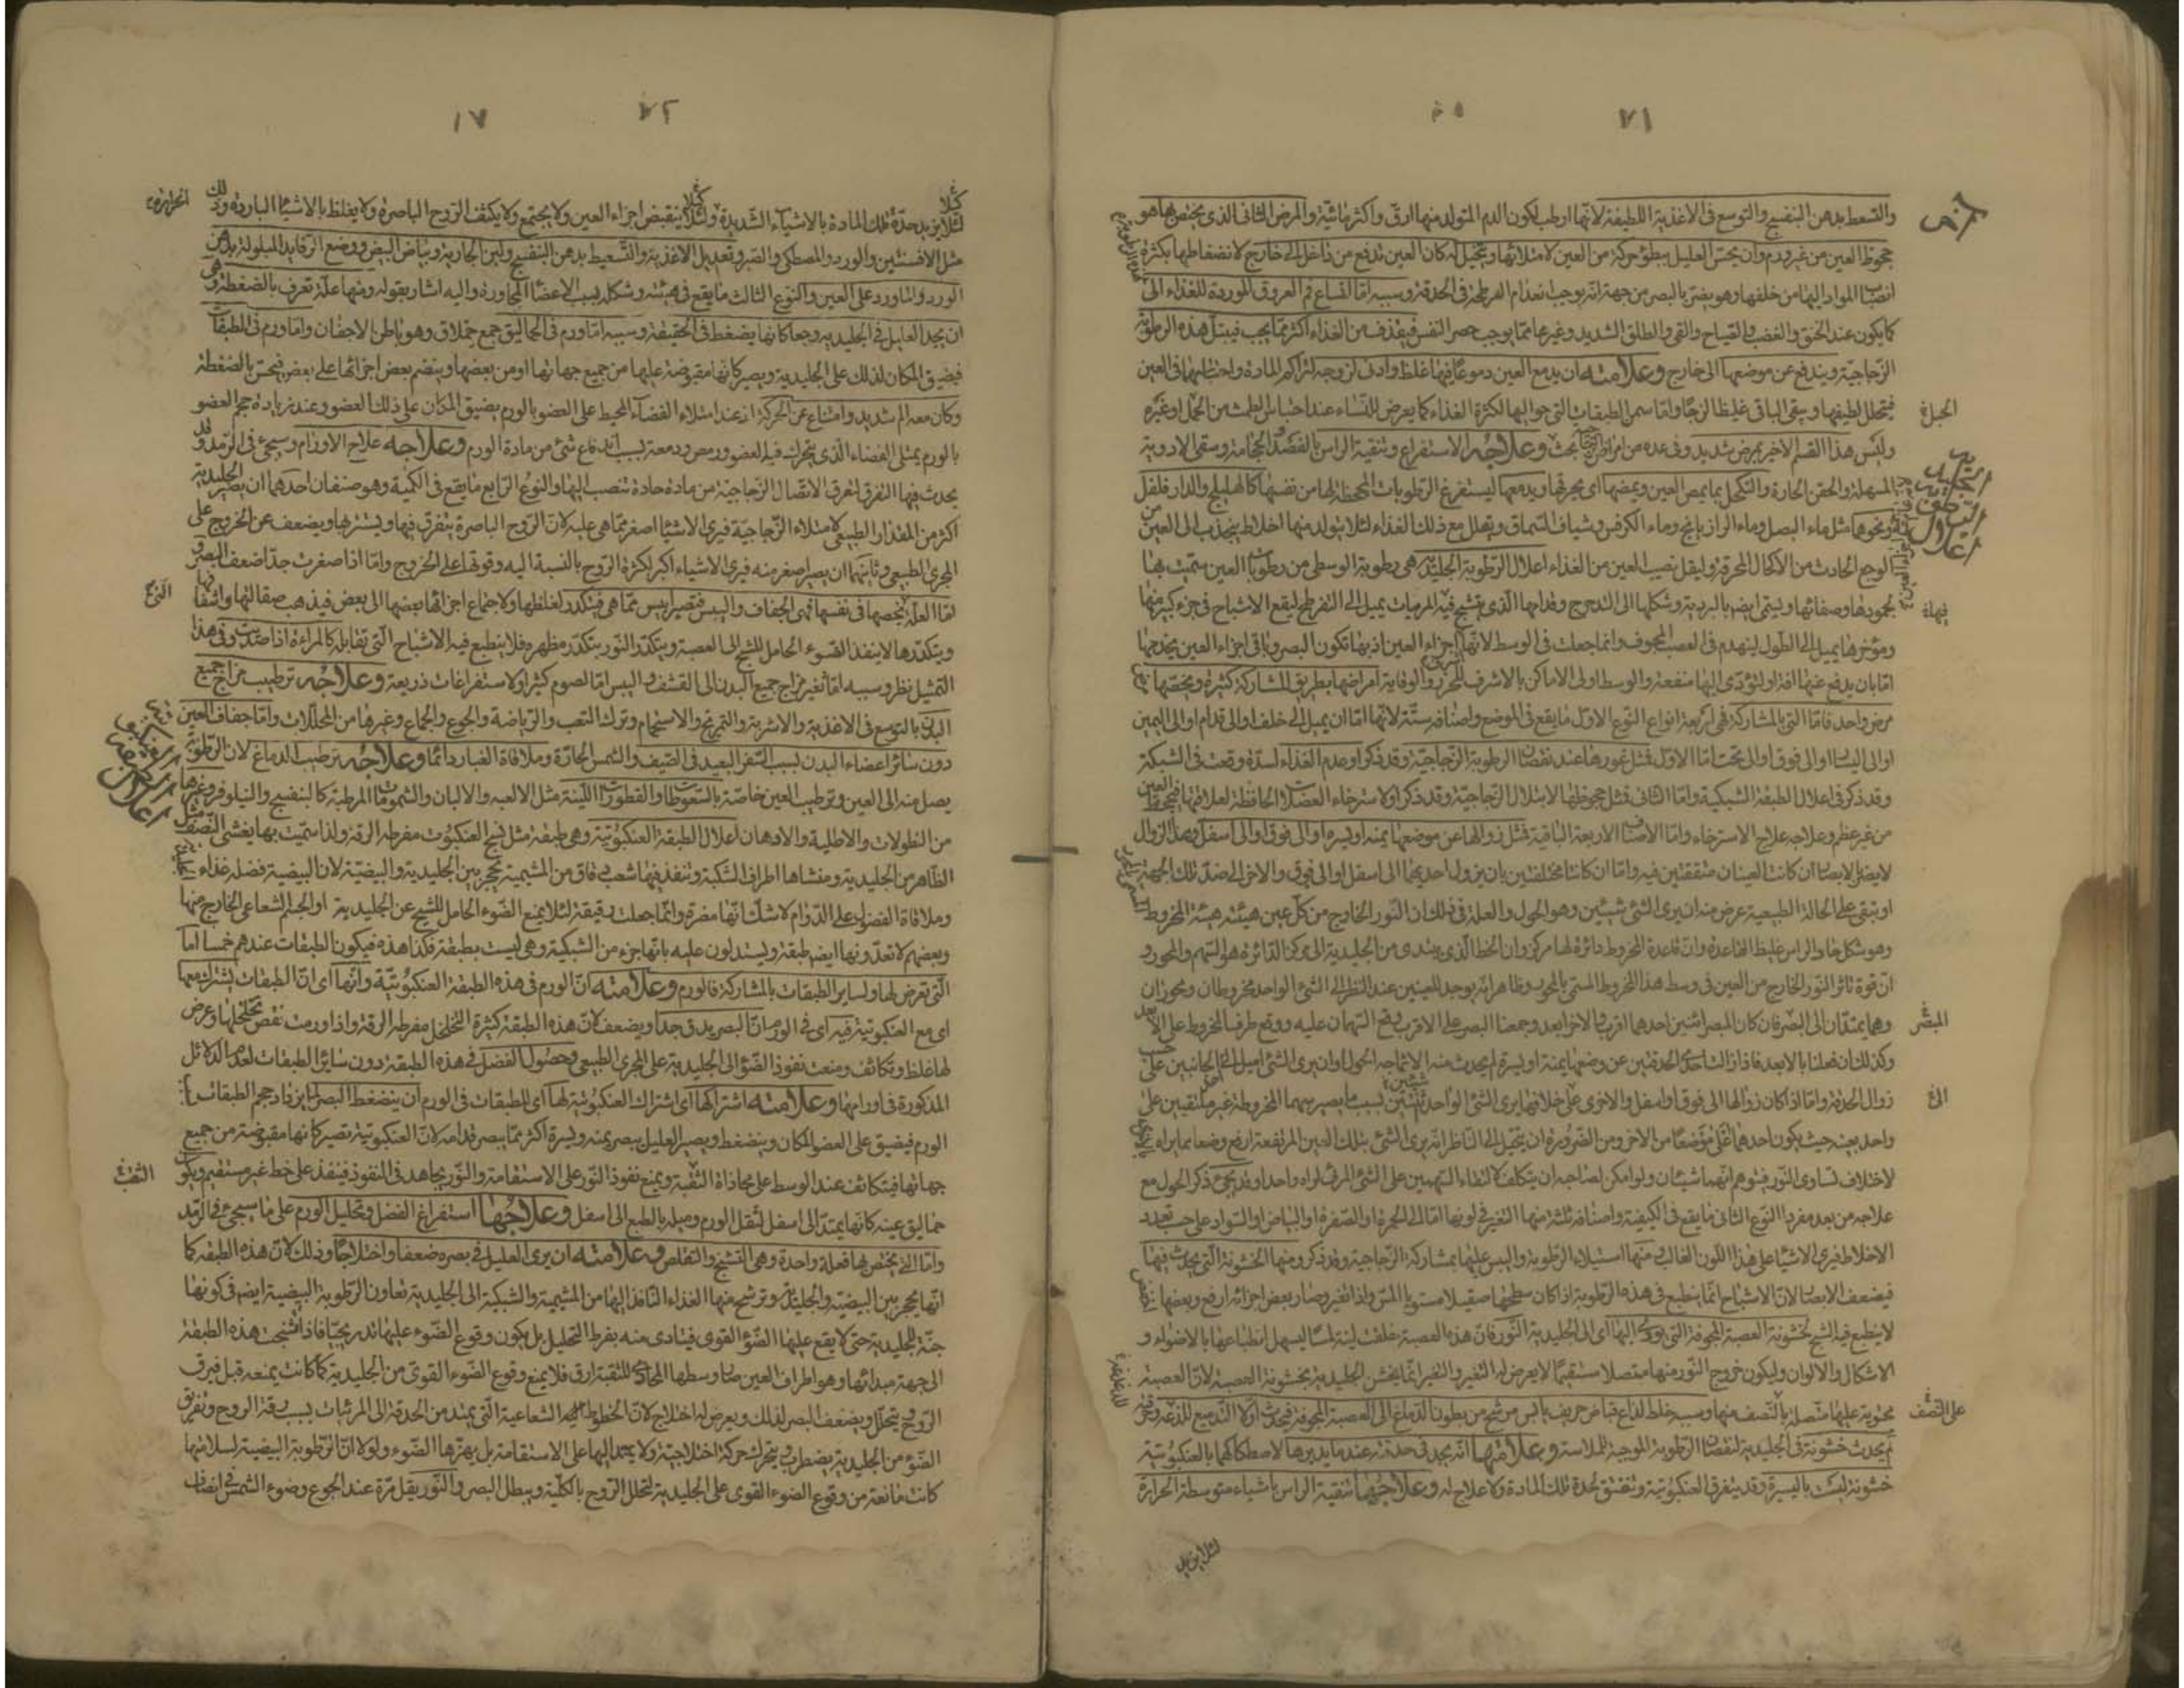 ٧١
والتسعط بدهن البنفسج والتوسع فى الاغذية اللطيفة لانها ارطب لكون الدم المتولد منها ارق واكثر مائية والمرض الثانى الذى يختص بها هو
جحوظ العين من غير ورم وان يحس العليل ببطؤ حركة من العين لامتلائها ويتخيل له كان العين تدفع من داخل الى خارج لانضغاطها بكثرة
انصباب المواد اليها من خلفها وهو يضر بالبصر من جهة انه يوجب انعدام الفرطحة فى الحدقة وسببه اما اتساع فم العروق الموردة للغذاء الى
كما يكون عند الخنق والغضب والصياح والقى والطلق الشديد وغيرها مما يوجب حصر النفس فيقذف من الغذاء اكثر مما يجب فيبتل هذه الرطوبة
الزجاجية ويندفع عن موضعها الى خارج وعلامته ان يدمع العين دموعا فيها غلظ وادنى لزوجة لتراكم المادة واحتباسها فى العين
فيتحلل لطيفها ويبقى الباقى غليظا لزجا واما سمن الطبقات التى حواليها لكثرة الغذاء كما يعرض للنساء عند احتباس الطمث من الحمل او غيره
وليس هذا القسم الاخير بمرض شديد وفى عده من امراض بحث وعلاجه الاستفراغ وتنقية الراس بالفصد والحجامة وسقى الادوية
المسهلة والحقن الحارة والتكحل بما يمص العين ويمضها اى يحرقها ويدمعها ليستفرغ الرطوبات المجحظة لها من نفسها كالهليلج والدار فلفل
ونحوهما مثل ماء البصل وماء الرازيانج وماء الكرفس وشياف السماق ويقلل مع ذلك الغذاء لئلا يتولد منها اخلاط ينجذب الى العين
الوجع الحادث من الاكحال المحرقة وليقل نصيب العين من الغذاء اعلال الرطوبة الجليدية هى رطوبة الوسطى من رطوبات العين سميت بها
لجمودها وصفائها ويسمى ايضا بالبردية وشكلها الى التدحرج وقدامها الذى تشبح فيه المرئيات يميل الى التفرطح ليقع الاشباح فى جزء كبير منها
ومؤخرها يميل الى الطول ليهندم فى العصب المجوف وانما جعلت فى الوسط لانها اشرف اجزاء العين اذ بها تكون البصر وباقى اجزاء العين يخدمها
اما بان يدفع عنها افة او لتؤدى اليها منفعة والوسط اولى الاماكن بالاشرف للحرز والوقاية امراضها بطريق المشاركة كثيرة ويختصها
مرض واحد فاما التى بالمشاركة فهى اربعة انواع النوع الاول ما يقع فى الموضع واصنافه ستة لانها اما ان يميل الى خلف او الى قدام او الى اليمين
او الى اليسار او الى فوق او الى تحت اما الاول فمثل غورها عند نقصان الرطوبة الزجاجية وقد ذكر او عدم الغذاء لسدة وقعت فى الشبكة
وقد ذكر فى اعلال الطبقة الشبكية واما الثانى فمثل جحوظها لابتلال الزجاجية وقد ذكر او لاسترخاء العضلات الحافظة لعلاقتها فيجحظ العين
من غير عظم وعلاجه علاج الاسترخاء واما الاصناف الاربعة الباقية فمثل زوالها عن موضعها يمنة او يسرة او الى فوق او الى اسفل وهذا الزوال
لا يضر الابصار ان كانت العينان متفقتين فيه واما ان كانتا مختلفتين بان يزول احديهما الى اسفل او الى فوق والاخرى الى ضد تلك الجهة
او تبقى على الحالة الطبيعية عرض منه ان يرى الشئ شيئين وهو الحول والعلة فى ذلك ان النور الخارج من كل عين هيئته هيئة المخروط
وهو شكل حاد الراس غليظ القاعدة وان قاعدة المخروط دائرة لها مركز وان الخط الذى يبتدى من الجليدية الى مركز الدائرة هو السهم والمحور و
ان قوة تاثر النور الخارج من العين فى وسط هذا المخروط المسمى بالمحور وظاهر انه يوجد للعينين عند النظر الى الشئ الواحد مخروطان ومحوران
وهما يمتدان الى البصر فان كان المبصر اثنين احدهما اقرب والاخر ابعد وجمعنا البصر على الاقرب وقع السهمان عليه ووقع طرفا المخروط على الابعد
وكذلك ان فعلنا بالابعد فاذا زالت احدى الحدقتين عن وضعها يمنة او يسرة لم يحدث منه الا سماجة الحول وان يرى الشئ اميل الى الجانبين على حسب
زوال الحدقة واما اذا كان زوالها الى فوق او اسفل والاخرى على خلافها يرى الشئ الواحد شيئين بسبب ما يصير سهما المخروطة غير ملتقيين على
واحد بعينه حيث يكون احدهما اعلى موضعا من الاخر ومن الضرورة ان يتخيل الى الناظر انه يرى الشئ بتلك العين المرتفعة ارفع وضعا مما يراه
لاختلاف تساوى النور فيتوهم انهما شيئان ولو امكن لصاحبه ان يتكلف لالتقاء السهمين على الشئ المرئى لراه واحدا وقد يجئ ذكر الحول مع
علاجه من بعد مفردا النوع الثانى ما يقع فى الكيفية واصنافه ثلثة منها التغير فى لونها اما الى الحمرة او الصفرة او البياض او السواد على حسب تعدد
الاخلاط فيرى الاشياء على هذا اللون الغالب ومنها استيلاء الرطوبة واليبس عليها بمشاركة الزجاجية وقد ذكر ومنها الخشونة التى يحدث فيها
فيضعف الابصار لان الاشباح انما ينطبع فى هذه الرطوبة اذا كان سطحها صقيلا مستويا املس واذا تغير وصار بعض اجزائه ارفع وبعضها
لا ينطبع فيه الشبح لخشونة العصبة المجوفة التى يؤدى اليها اى الى الجليدية النور فان هذه العصبة خلقت لينة ملسا ليسهل انطباعها بالاضواء و
الاشكال والالوان وليكون خروج النور منها متصلا مستقيما لا يعرض له التغير والتغير انما يخشن الجليدية بخشونة العصبة لان العصبة
محتوية عليها متصلة بالنصف منها وسببه خلط لذاع قباض حريف يابس مترشح من بطون الدماغ الى العصبة المجوفة فيحدث اولا التدميع للذعه وحرقته
ثم يحدث خشونة فى الجليدية لنقصان الرطوبة الموجبة للملاسة وعلامتها انه يجد فى حدقته عند ما يديرها لاصطكاكها بالعنكبوتية
خشونة ليست باليسيرة وقد يتفرق العنكبوتية وتنفتق لحدة تلك المادة ولا علاج له وعلاجها تنقية الراس باشياء متوسطة الحرارة
لئلا يزيد
اعلال الرطوبة الجليدية
الجبلة
المبصر
على النصف
٧٢
١٧
لئلا يزيد حدة تلك المادة بالاشياء الشديدة ولئلا ينقبض اجزاء العين ولا يجتمع ولا يكثف الروح الباصرة ولا يغلظ بالاشياء الباردة وذلك
مثل الافسنتين والورد والمصطكى والصبر وتعديل الاغذية والتسعيط بدهن البنفسج ولبن الجارية وبياض البيض ووضع الرفايد المبلولة بدهن
الورد والماورد على العين والنوع الثالث ما يقع فى هيئته وشكله بسبب الاعضاء المجاورة واليه اشار بقوله ومنها علة تعرف بالضغطة وهى
ان يجد العليل فى الجليدية وجعا كانها يضغط فى الحقيقة وسببه اما ورم فى الحماليق جمع حملاق وهو باطن الاجفان واما ورم فى الطبقات
فيضيق المكان لذلك على الجليدية ويصير كانها مقبوضة عليها من جميع جهاتها او من بعضها وينضم بعض اجزائها على بعض فيحس بالضغطة
وكان معه الم شديد وامتناع عن الحركة اذ عند امتلاء الفضاء المحيط على العضو بالورم يضيق المكان على ذلك العضو وعند زيادة حجم العضو
بالورم يمتلى الفضاء الذى يتحرك فيه العضو ورمص ودمعة بسبب اندفاع شئ من مادة الورم وعلاجه علاج الاورام وسيجئ فى الرمد وقد
يحدث فيها التفرق لتفرق الاتصال الزجاجية من مادة حادة تنصب اليها والنوع الرابع ما يقع فى الكمية وهو صنفان احدهما ان يصير الجليدية
اكثر من المقدار الطبيعى لامتلاء الزجاجية فيرى الاشياء اصغر مما هى عليه لان الروح الباصرة يتفرق فيها ويستتر بها ويضعف عن الخروج على
المجرى الطبيعى وثانيهما ان يصير اصغر منه فيرى الاشياء اكبر لكثرة الروح بالنسبة اليه وقوتها على الخروج واما اذا صغرت جدا ضعف البصر و
اما العلة يخصها فى نفسها فهى الجفاف واليبس فتصير ايبس مما هى فيتكدر لغلظها ولاجتماع اجزائها بعضها الى بعض فيذهب صقالتها واشفافها
وبتكدرها لا ينفذ الضوء الحامل للشبح الى العصبة ويتكدر النور بتكدر مظهره فلا ينطبع فيه الاشباح التى تقابله كالمراءة اذا صديت وفى هذا
التمثيل نظر وسببه اما تغير مزاج جميع البدن الى القشف واليبس اما لصوم كثير او لاستفراغات ذريعة وعلاجه ترطيب مزاج جميع
البدن بالتوسع فى الاغذية والاشربة والتمريخ والاستحمام وترك التعب والرياضة والجوع والجماع وغيرها من المحللات واما جفاف العين
دون سائر اعضاء البدن بسبب السفر البعيد فى الصيف والشمس الحارة وملاقاة الغبار دائما وعلاجه ترطيب الدماغ لان الرطوبة
يصل منه الى العين وترطيب العين خاصة بالسعوطات والقطورات اللينة مثل الالعبة والالبان والشمومات المرطبة كالبنفسج والنيلوفر وغيرها
من النطولات والاطلية والادهان اعلال الطبقة العنكبوتية وهى طبقة مثل نسج العنكبوت مفرطه الرقة ولذا سميت بها يغشى النصف
الظاهر من الجليدية ومنشاها اطراف الشبكة وتنفذ فيها شعب دقاق من المشيمية تحجز بين الجليدية والبيضية لان البيضية فضلة غذاء
وملاقاة الفضول على الدوام لا شك انها مضرة وانما جعلت رقيقة لئلا يمنع الضوء الحامل للشبح عن الجليدية او الجسم الشعاعى الخارج منها
وبعضهم لا تعدونها ايضا طبقة ويستدلون عليه بانها جزء من الشبكية وهى ليست بطبقة فكذا هذه فيكون الطبقات عندهم خمسا اما
التى تعرض لها ولساير الطبقات بالمشاركة فالورم وعلامته ان الورم فى هذه الطبقة العنكبوتية وانها اى ان الطبقات يشترك معها
اى مع العنكبوتية فيه اى فى الورم ان البصر يدق جدا ويضعف لان هذه الطبقة كثيرة التخلخل مفرطه الرقة واذا ورمت نقص تخلخلها وعرض
لها غلظ وتكاثف ومنعت نفوذ الضوء الى الجليدية على المجرى الطبيعى وحصول الفضل فى هذه الطبقة دون ساير الطبقات لعدم الدلائل
المذكورة فى اورامها وعلامته اشتراكها اى اشتراك العنكبوتية لها اى للطبقات فى الورم ان ينضغط البصر لما يزداد حجم الطبقات
الورم فيضيق على العضو المكان وينضغط ويصير العليل يبصر يمنة ويسرة اكثر مما يبصر قدامه لان العنكبوتية تصير كانها مقبوضة من جميع
جهاتها فيتكاثف عند الوسط على محاذاة الثقبة ويمنع نفوذ النور على الاستقامة والنور يجاهد فى النفوذ فينفذ على خط غير مستقيم ويكون
حماليق عينه كانها يمتد الى اسفل لثقل الورم وميله بالطبع الى اسفل وعلاجها استفراغ الفضل وتحليل الورم على ما سيجئ فى الرمد
واما التى يختص بها فعلة واحدة وهى التشنج والتقلص وعلامته ان يرى العليل فى بصره ضعفا واختلاجا وذلك لان هذه الطبقة كما
انها يحجز بين البيضية والجليدية وترشح منها الغذاء النافذ اليها من المشيمية والشبكية الى الجليدية تعاون الرطوبة البيضية ايضا فى كونها
جنة للجليدية حتى لا يقع عليها الضوء القوى فيتادى منه بفرط التحليل بل يكون وقوع الضوء عليها تدريجيا فاذا تشنجت هذه الطبقة
الى جهة مبدائها وهو اطراف العين صار وسطها المحاذى للثقبة ارق فلا يمنع وقوع الضوء القوى من الجليدية كما كانت يمنعه قبل فيرق
الروح ويتحلل ويضعف البصر لذلك ويعرض له اختلاج لان الخطوط الشعاعية التى يمتد من الحدقة الى المرئيات بسبب رقة الروح وتفريق
الضوء من الجليدية يضطرب ويتحرك حركة اختلاجية ولا يمتد اليها على الاستقامة بل يهزها الضوء ولولا ان الرطوبة البيضية لسلامتها
كانت مانعة من وقوع الضوء القوى على الجليدية لتحلل الروح بالكلية ويبطل البصر والنور يقل مرة عند الجوع وضوء الشمس فى انصاف
الثقبة